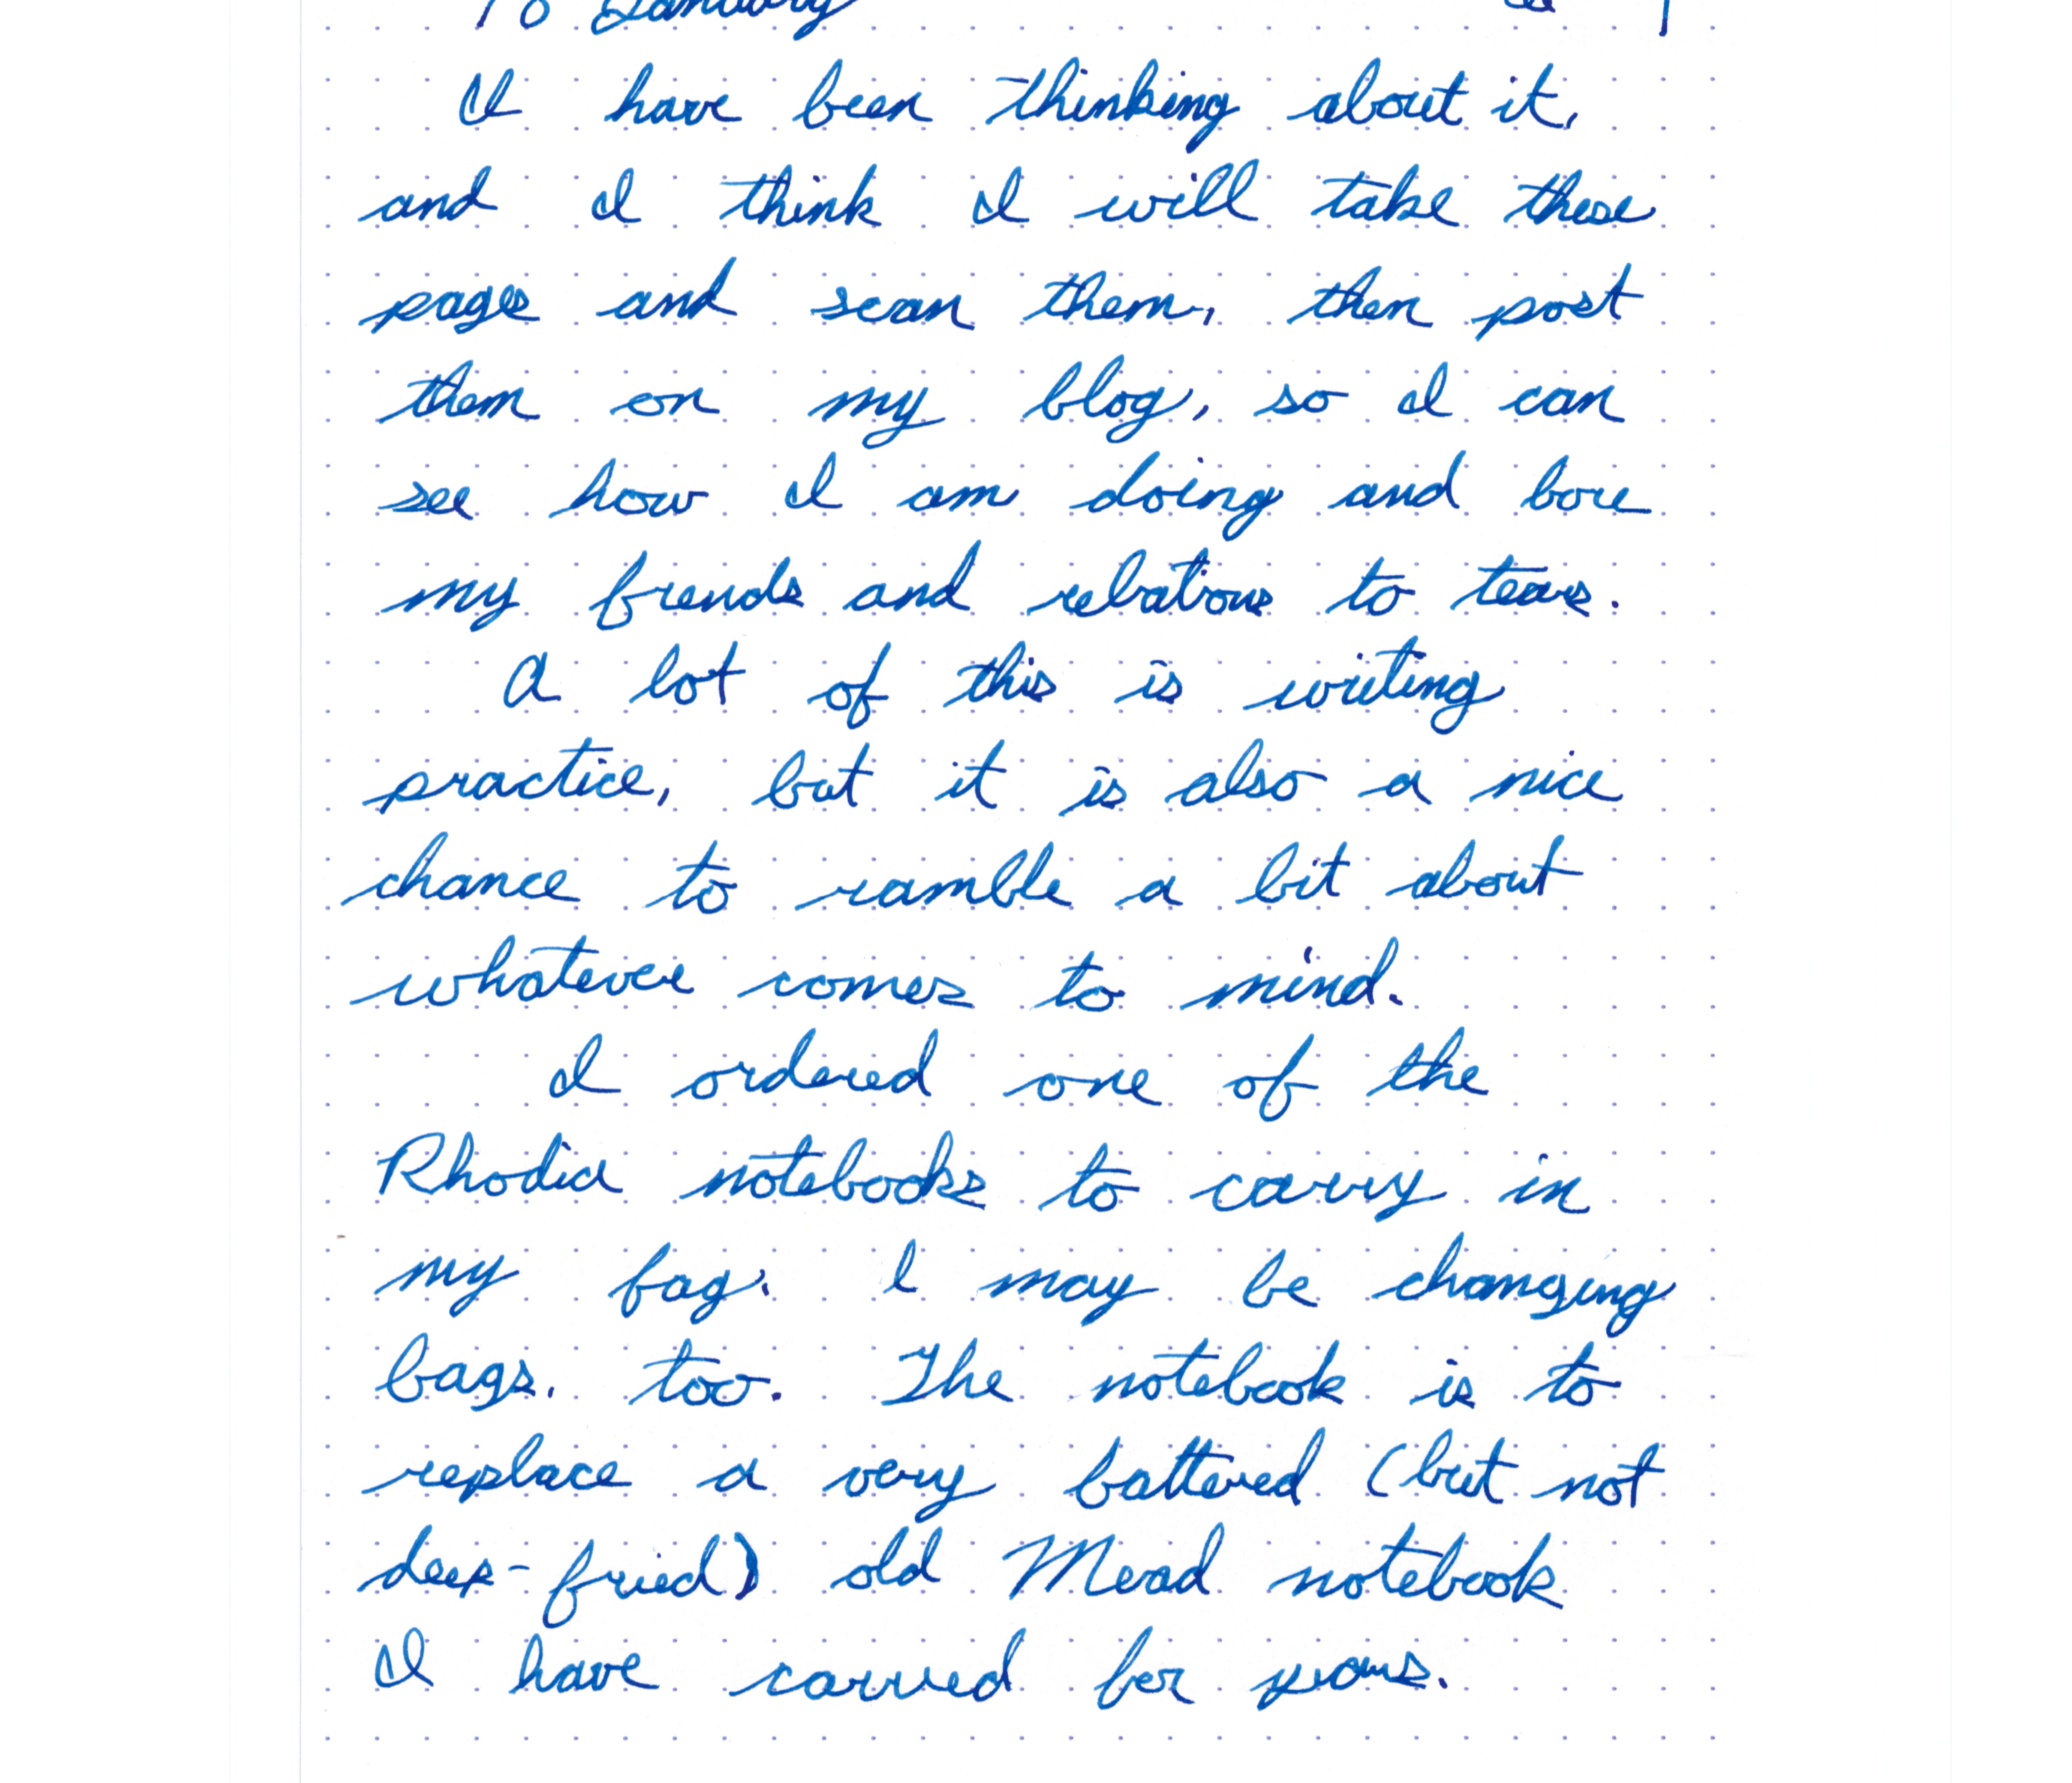 18 January
I have been thinking about it,
and I think I will take these
pages and scan them, then post
them on my blog, so I can
see how I am doing and bore
my friends and relations to tears.
A lot of this is writing
practice, but it is also a nice
chance to ramble a bit about
whatever comes to mind.
I ordered one of the
Rhodia notebooks to carry in
my bag. I may be changing
bags, too. The notebook is to
replace a very battered (but not
deep-fried) old Mead notebook
I have carried for years.